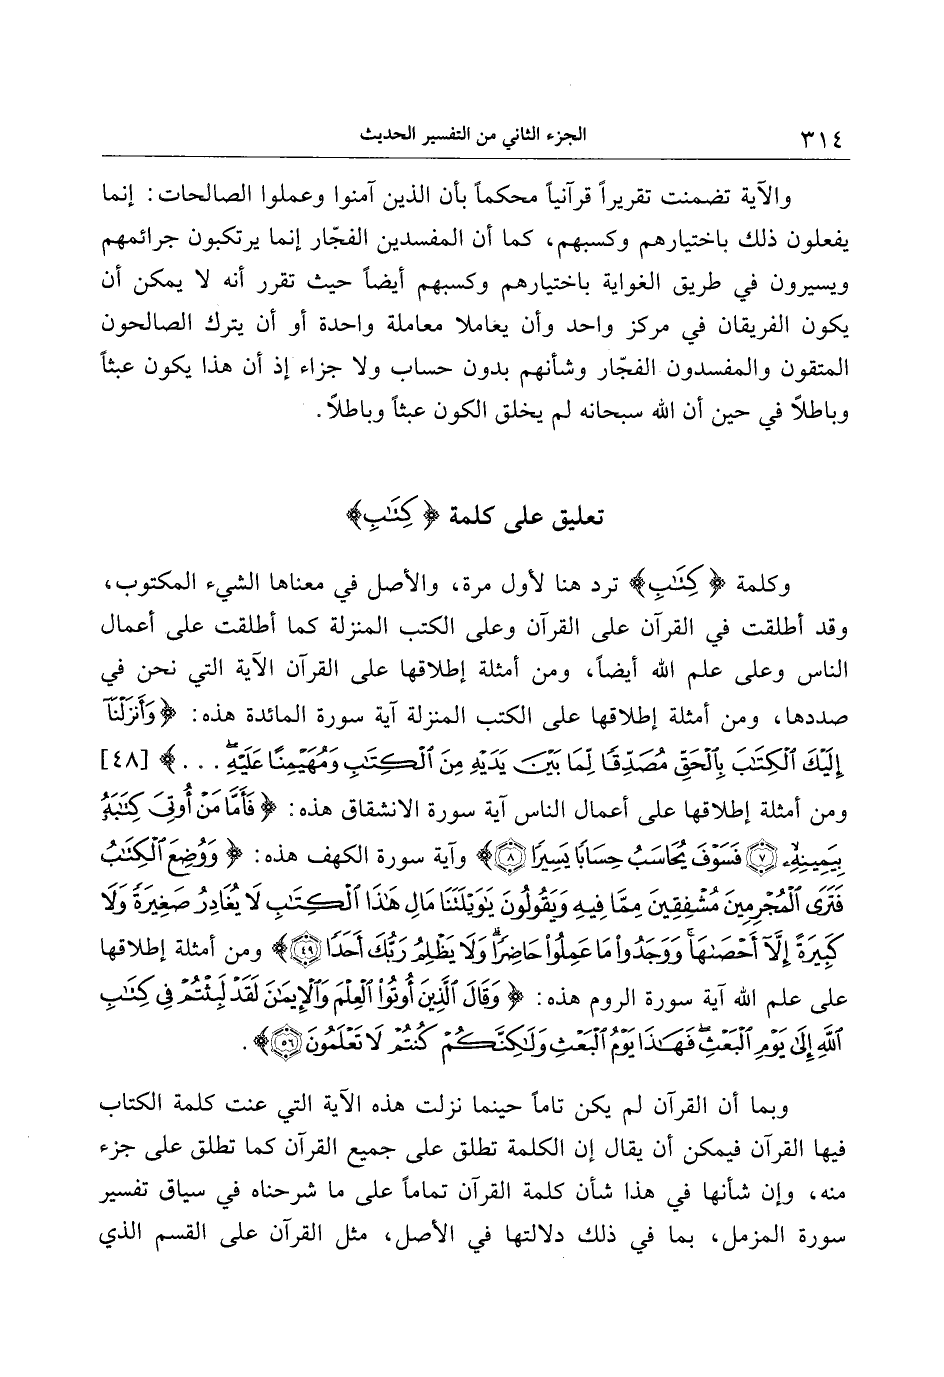 ٣١٤ الجزء الثاني من التفسير الحديث
والآية تضمنت تقريراً قرآنياً محكماً بأن الذين آمنوا وعملوا الصالحات: إنما
يفعلون ذلك باختيارهم وكسبهم، كما أن المفسدين الفجّار إنما يرتكبون جرائمهم
ويسيرون في طريق الغواية باختيارهم وكسبهم أيضاً حيث تقرر أنه لا يمكن أن
يكون الفريقان في مركز واحد وأن يعاملا معاملة واحدة أو أن يترك الصالحون
المتقون والمفسدون الفجّار وشأنهم بدون حساب ولا جزاء إذ أن هذا يكون عبثاً
وباطلاً في حين أن الله سبحانه لم يخلق الكون عبثاً وباطلاً.
تعليق على كلمة ﴿كِتَٰبِ﴾
وكلمة ﴿كِتَٰبِ﴾ ترد هنا لأول مرة، والأصل في معناها الشيء المكتوب،
وقد أطلقت في القرآن على القرآن وعلى الكتب المنزلة كما أطلقت على أعمال
الناس وعلى علم الله أيضاً، ومن أمثلة إطلاقها على القرآن الآية التي نحن في
صددها، ومن أمثلة إطلاقها على الكتب المنزلة آية سورة المائدة هذه: ﴿وَأَنزَلْنَآ
إِلَيْكَ ٱلْكِتَٰبَ بِٱلْحَقِّ مُصَدِّقًا لِّمَا بَيْنَ يَدَيْهِ مِنَ ٱلْكِتَٰبِ وَمُهَيْمِنًا عَلَيْهِۖ ...﴾ [٤٨]
ومن أمثلة إطلاقها على أعمال الناس آية سورة الانشقاق هذه: ﴿فَأَمَّا مَنْ أُوتِىَ كِتَٰبَهُۥ
بِيَمِينِهِۦ ۝٧ فَسَوْفَ يُحَاسَبُ حِسَابًا يَسِيرًا ۝٨﴾ وآية سورة الكهف هذه: ﴿وَوُضِعَ ٱلْكِتَٰبُ
فَتَرَى ٱلْمُجْرِمِينَ مُشْفِقِينَ مِمَّا فِيهِ وَيَقُولُونَ يَٰوَيْلَتَنَا مَالِ هَٰذَا ٱلْكِتَٰبِ لَا يُغَادِرُ صَغِيرَةً وَلَا
كَبِيرَةً إِلَّآ أَحْصَىٰهَاۚ وَوَجَدُوا۟ مَا عَمِلُوا۟ حَاضِرًاۗ وَلَا يَظْلِمُ رَبُّكَ أَحَدًا ۝٤٩﴾ ومن أمثلة إطلاقها
على علم الله آية سورة الروم هذه: ﴿وَقَالَ ٱلَّذِينَ أُوتُوا۟ ٱلْعِلْمَ وَٱلْإِيمَٰنَ لَقَدْ لَبِثْتُمْ فِى كِتَٰبِ
ٱللَّهِ إِلَىٰ يَوْمِ ٱلْبَعْثِۖ فَهَٰذَا يَوْمُ ٱلْبَعْثِ وَلَٰكِنَّكُمْ كُنتُمْ لَا تَعْلَمُونَ ۝٥٦﴾.
وبما أن القرآن لم يكن تاماً حينما نزلت هذه الآية التي عنت كلمة الكتاب
فيها القرآن فيمكن أن يقال إن الكلمة تطلق على جميع القرآن كما تطلق على جزء
منه، وإن شأنها في هذا شأن كلمة القرآن تماماً على ما شرحناه في سياق تفسير
سورة المزمل، بما في ذلك دلالتها في الأصل، مثل القرآن على القسم الذي